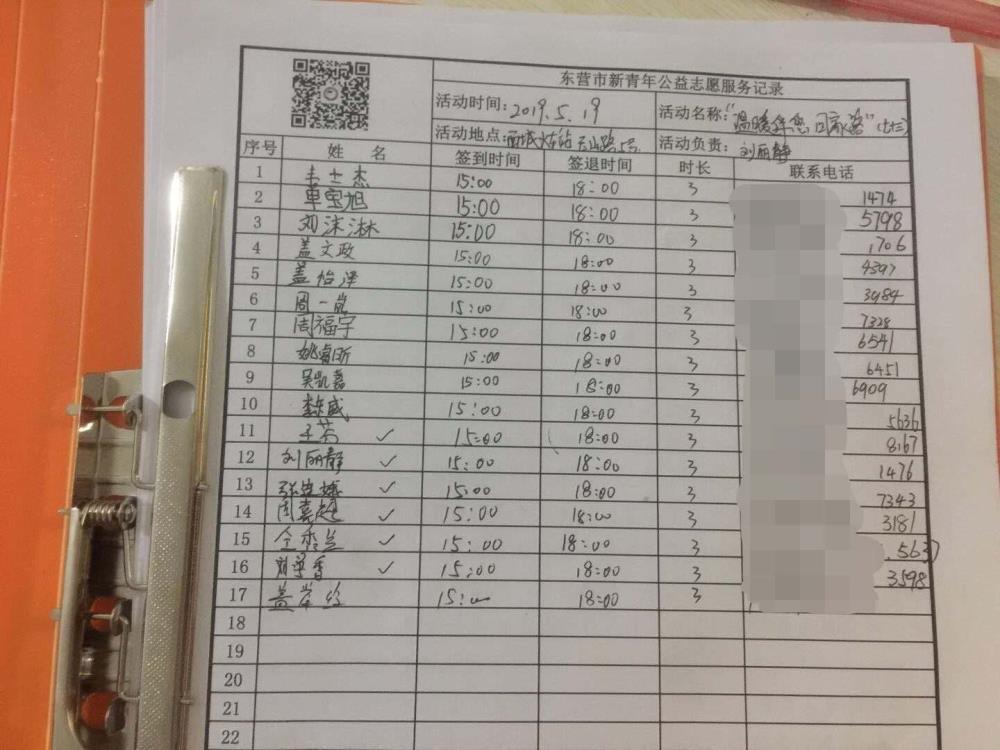 东营市新青年公益志愿服务记录
活动时间：2019.5.19 活动名称："温暖伴您回家路"（七十三）
活动地点：西城火车站 负责：刘丽静
序号 姓 名 签到时间 签退时间 时长 联系电话
1 士杰 15:00 18:00 3 1474
2 单宝旭 15:00 18:00 3 5798
3 刘沫淋 15:00 18:00 3 1706
4 盖文政 15:00 18:00 3 4397
5 盖怡泽 15:00 18:00 3 3984
6 周一岚 15:00 18:00 3 7328
7 周福宇 15:00 18:00 3 6541
8 姚睿昕 15:00 18:00 3 6451
9 吴凯磊 15:00 18:00 3 6909
10 15:00 18:00 3 5636
11 ✓ 15:00 18:00 3 8167
12 刘丽静 ✓ 15:00 18:00 3 1476
13 ✓ 15:00 18:00 3 7343
14 周嘉超 ✓ 15:00 18:00 3 3181
15 ✓ 15:00 18:00 3 5637
16 ✓ 15:00 18:00 3 3598
17 盖 15:00 18:00 3
18
19
20
21
22